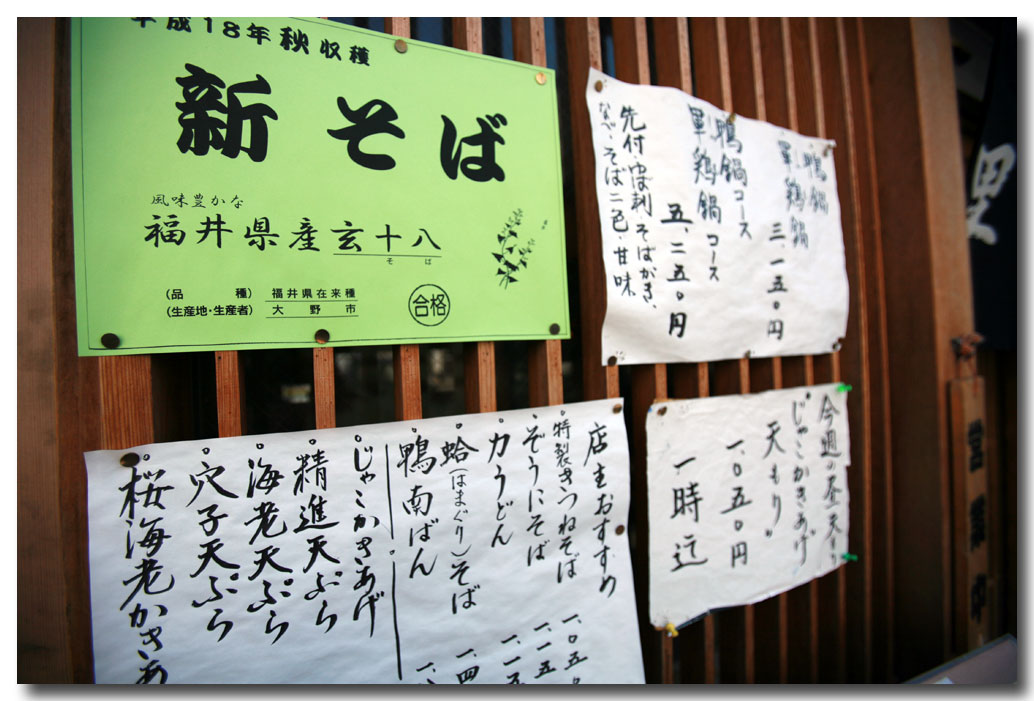 平成18年秋収穫
新そば
風味豊かな
福井県産玄十八
そば
(品種) 福井県在来種
(生産地・生産者) 大野市
合格
鴨鍋
軍鶏鍋
三、一五〇円
鴨鍋コース
軍鶏鍋コース
五、二五〇円
先付、ゆば刺、そばがき、
なべ、そば二色、甘味
店主おすすめ
特製きつねそば
ぞうにそば
力うどん
蛤(はまぐり)そば
鴨南ばん
じゃこかきあげ
精進天ぷら
海老天ぷら
穴子天ぷら
桜海老かきあ
今週の昼天もり
"じゃこかきあげ
天もり"
一、〇五〇円
一時迄
営業中